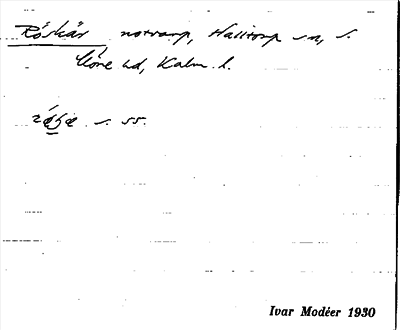 Röskär notvarp, Halltorp sn, S.
Möre hd, Kalm. l.
s. 55.
Ivar Modéer 1930